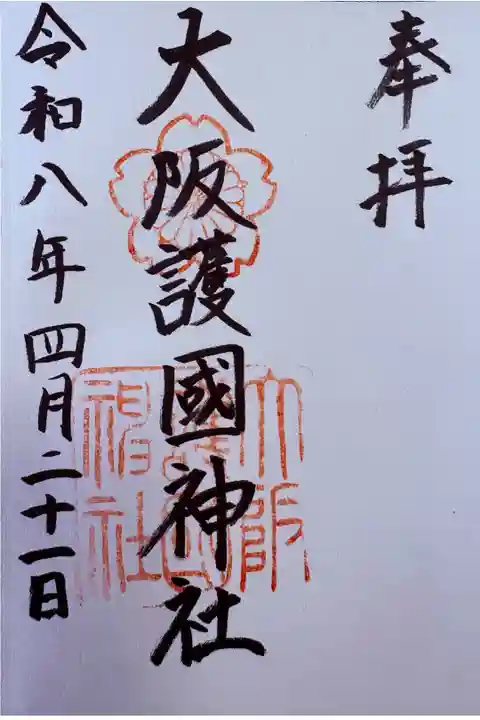 奉拝
大阪護國神社
大阪
護國
神社
令和八年四月二十一日